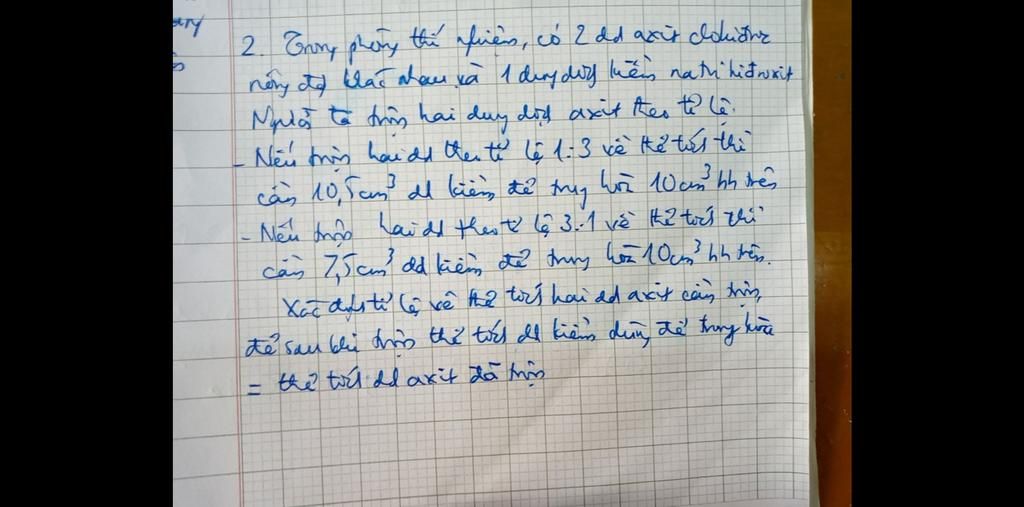 2. Trong phòng thí nghiệm, có 2 dd axit clohiđric
nồng độ khác nhau và 1 dung dịch kiềm natri hiđroxit
Người ta trộn hai dung dịch axit theo tỉ lệ.
- Nếu trộn hai dd theo tỉ lệ 1:3 về thể tích thì
cần 10,5cm³ dd kiềm để trung hoà 10cm³ hh trên
- Nếu trộn hai dd theo tỉ lệ 3:1 về thể tích thì
cần 7,5cm³ dd kiềm để trung hoà 10cm³ hh trên.
Xác định tỉ lệ về thể tích hai dd axit cần trộn,
để sau khi trộn thể tích dd kiềm dùng để trung hoà
= thể tích dd axit đã trộn